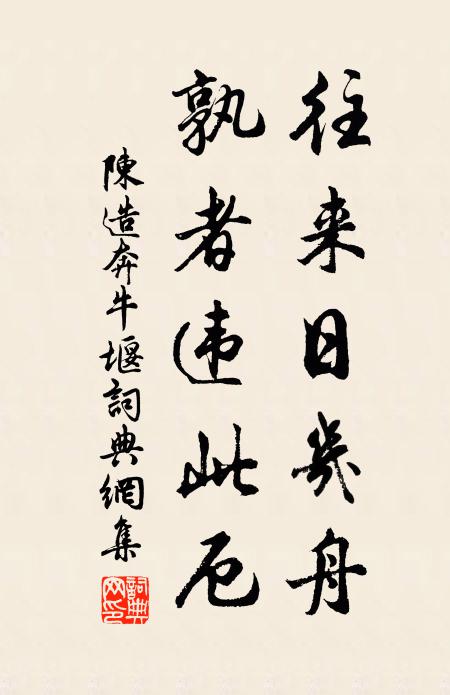 往来日幾舟
孰者违此厄
陳造奔牛堰詞典網集
詞典網印